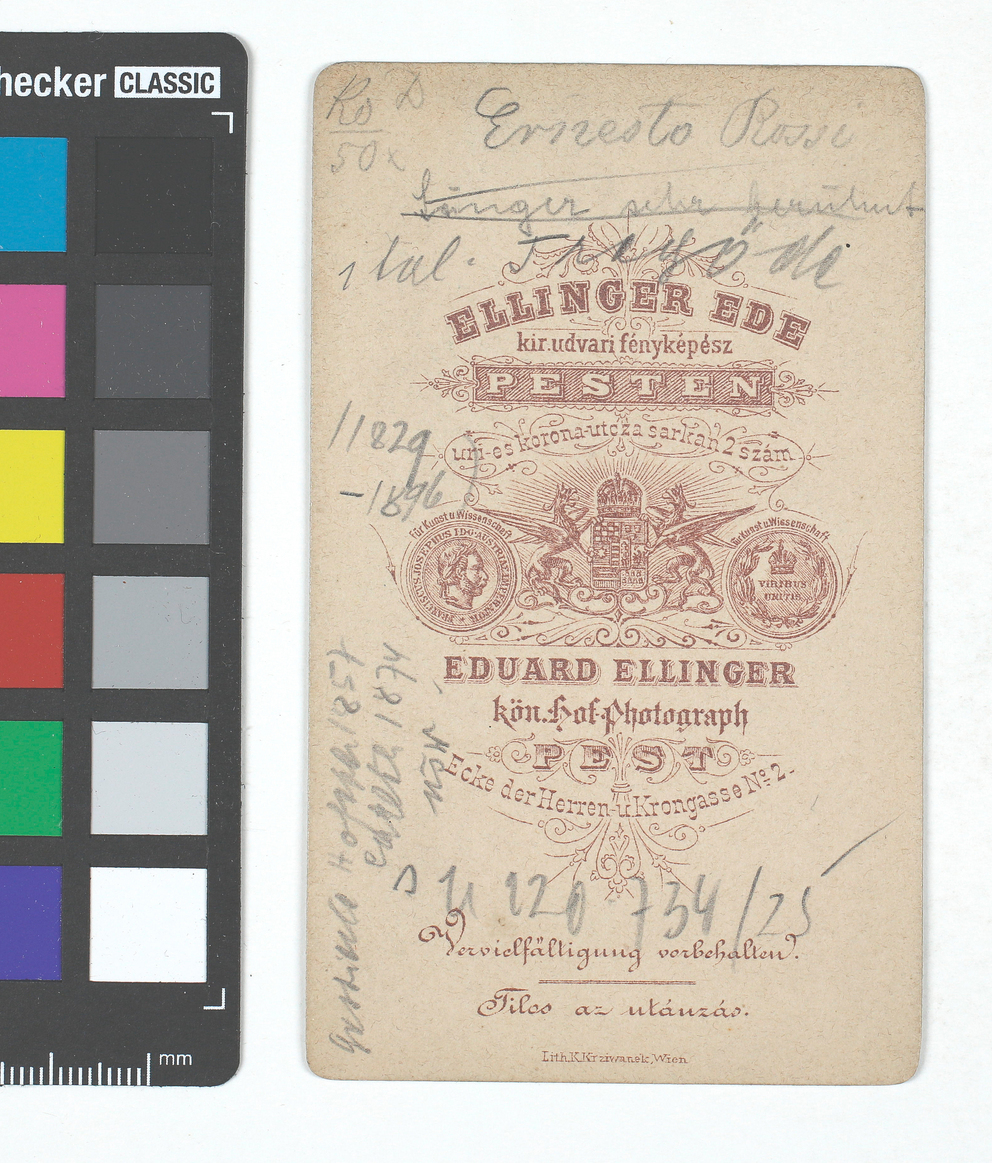 hecker CLASSIC
Ro D
50x
Ernesto Rossi
Sänger sehr berühmt
ital. Tragöde
ELLINGER EDE
kir.udvari fényképész
PESTEN
uri-es korona-utcza sarkán 2 szám
/1829
-1896
Für Kunst u Wissenschaft
Für Kunst u Wissenschaft
VIRIBUS
UNITIS
EDUARD ELLINGER
kön. Hof-Photograph
PEST
Ecke der Herren-u Krongasse No. 2.
1857
1874
N 120 734/25
Vervielfältigung vorbehalten.
Tilos az utánzás.
Lith.K.Krziwanek,Wien
mm